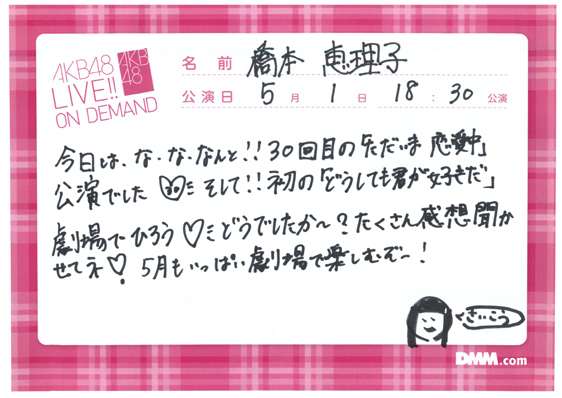 AKB48
LIVE!!
ON DEMAND
AKB
48
名前 橋本 恵理子
公演日 5月 1日 18:30 公演
今日は、な・な・なんと!!30回目の「ただいま 恋愛中」
公演でした♡ そして!!初の「どうしても君が好きだ」
劇場でひろう♡ どうでしたか〜?たくさん感想聞か
せてネ♡ 5月もいっぱい劇場で楽しむぞー!
さいこう
DMM.com